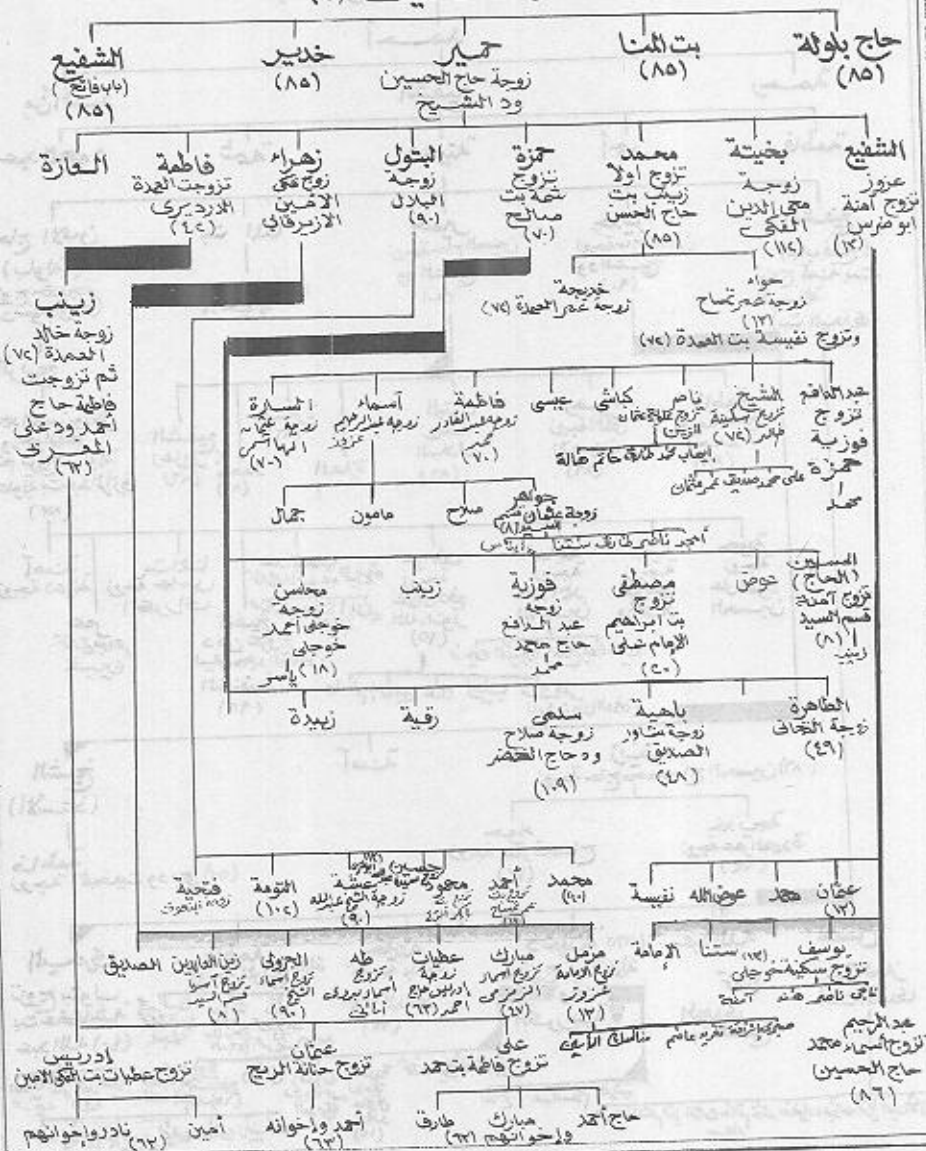 حاج بلولة
(٨٥)
بت المنا
(٨٥)
حمير
زوجة حاج الحسين
ود الشيخ
خدير
(٨٥)
الشفيع
(باب فاتح)
(٨٥)
الشفيع
عزوز
تزوج آمنة
ابو ضرس
(١٣)
بخيتة
زوجة
محي الدين
الفكي
(١١٢)
محمد
تزوج اولا
زينب بت
حاج الحسن
(٨٥)
حمزة
تزوج
شمة بت
صالح
(٧٠)
البتول
زوجة
البلال
(٩٠)
زهراء
زوج فكي
الامين
الازيرقابي
فاطمة
تزوجت العمدة
الدرديري
(٤٢)
العازة
حواء
زوجة عمر تمساح
(١٣)
خديجة
زوجة عمر العمدة (٧٢)
وتزوج نفيسة بت العمدة (٧٢)
زينب
زوجة خالد
العمدة (٧٢)
ثم تزوجت
فاطمة حاج
أحمد ود علي
المغربي
(٦٢)
عبد الدافع
تزوج
فوزية
حمزة
محمد
الشيخ
تزوج سكينة
(٧٢)
ناصر
كاشي
عيسى
فاطمة
زوجة عبد القادر
محمد
(٧٠)
أسماء
زوجة عبد الرحيم
عزوز
السارة
زوجة عثمان
(٧٠)
علي محمد صديق عمر عثمان
ايهاب محمد طارق حاتم هالة
جواهر
زوجة عثمان قسم
السيد (٨)
صلاح
مامون
جمال
أمجد ناصر طارق ستنا ايناس
الحسين
(الحاج)
تزوج آمنة
قسم السيد
(٨)
زينب
عوض
مصطفى
تزوج
بت ابراهيم
الامام علي
(٢٠)
فوزية
زوجة
عبد الدافع
حاج محمد
محمد
زينب
محاسن
زوجة
خوجلي أحمد
خوجلي
(١٨) ياسر
الطاهرة
زوجة التجاني
(٤٩)
باهية
زوجة شاور
الصديق
(٤٨)
سلمى
زوجة صلاح
ود حاج الخضر
(١٠٩)
رقية
زبيدة
محمد
(٩٠)
أحمد
محمود
عشة
زوجة الشيخ عبدالله
(٩٠)
التومة
(١٠٢)
فتحية
عثمان
(١٣)
محمد
عوض الله
نفيسة
يوسف
تزوج سكينة خوجلي
ستنا (١٣)
الإمامة
ناجي ناصر هند آمنة
مزمل
تزوج الإمامة
عزوز
(١٣)
مبارك
تزوج أسماء
الزمزمي
(٤٧)
عطيات
زوجة
ادريس حاج
احمد (٦٢)
طه
تزوج
أسماء بيروي
أماني
الجزولي
تزوج أسماء
الشيخ
(٩٠)
زين العابدين
تزوج آسيا
قسم السيد
(٨)
الصديق
عبد الرحيم
تزوج أسماء محمد
حاج الحسين
(٨٦)
علي
تزوج فاطمة بت حمد
عثمان
تزوج حنانة الريح
إدريس
تزوج عطيات بت الفكي الامين
حاج أحمد
مبارك
وإخوانهم (٦٢)
طارق
أحمد وإخوانه
(٦٢)
أمين
نادر وإخوانهم
(٦٢)